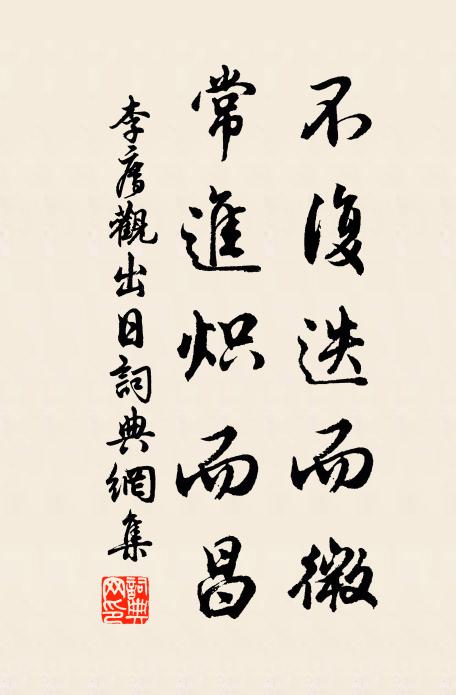 不復迭而微
常進炽而昌
李膺觀出日詞典網集
詞典網印